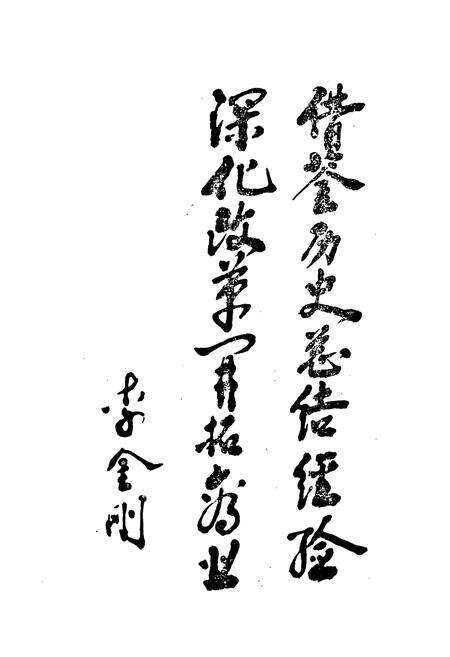 借鉴历史总结经验
深化改革開拓商业
李金刚